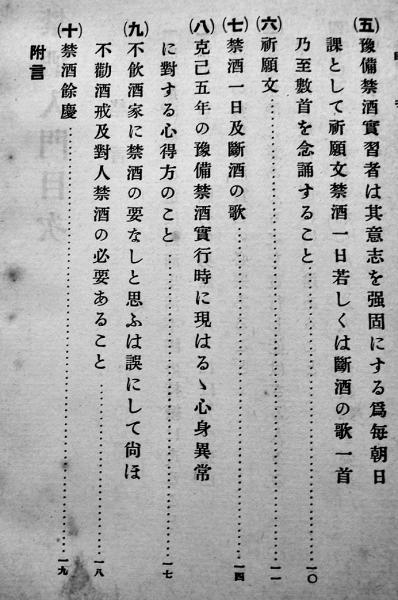 (五)豫備禁酒實習者は其意志を强固にする爲每朝日
課として祈願文禁酒一日若しくは斷酒の歌一首
乃至數首を念誦すること………一〇
(六)祈願文………一一
(七)禁酒一日及斷酒の歌………一四
(八)克己五年の豫備禁酒實行時に現はるゝ心身異常
に對する心得方のこと………一七
(九)不飮酒家に禁酒の要なしと思ふは誤にして尙ほ
不勸酒戒及對人禁酒の必要あること………一八
(十)禁酒餘慶………一九
附言